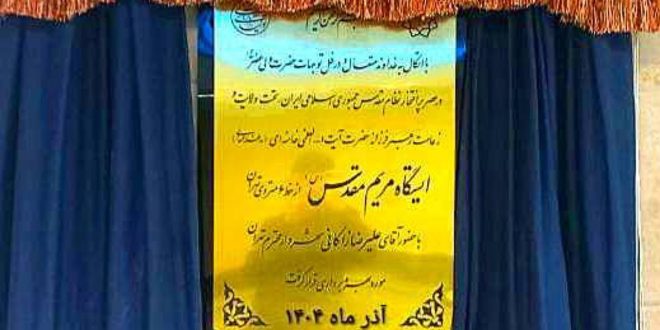 با اتکال به خداوند متعال و در ظل توجهات حضرت ولی عصر
در عصر پر افتخار نظام مقدس جمهوری اسلامی ایران، تحت ولایت و
زعامت رهبر فرزانه حضرت آیت ا... العظمی خامنه ای
ایستگاه مریم مقدس (س) از خط ۶ متروی تهران
با حضور آقای علیرضا زاکانی شهردار محترم تهران
مورد بهره برداری قرار گرفت
آذر ماه ۱۴۰۴